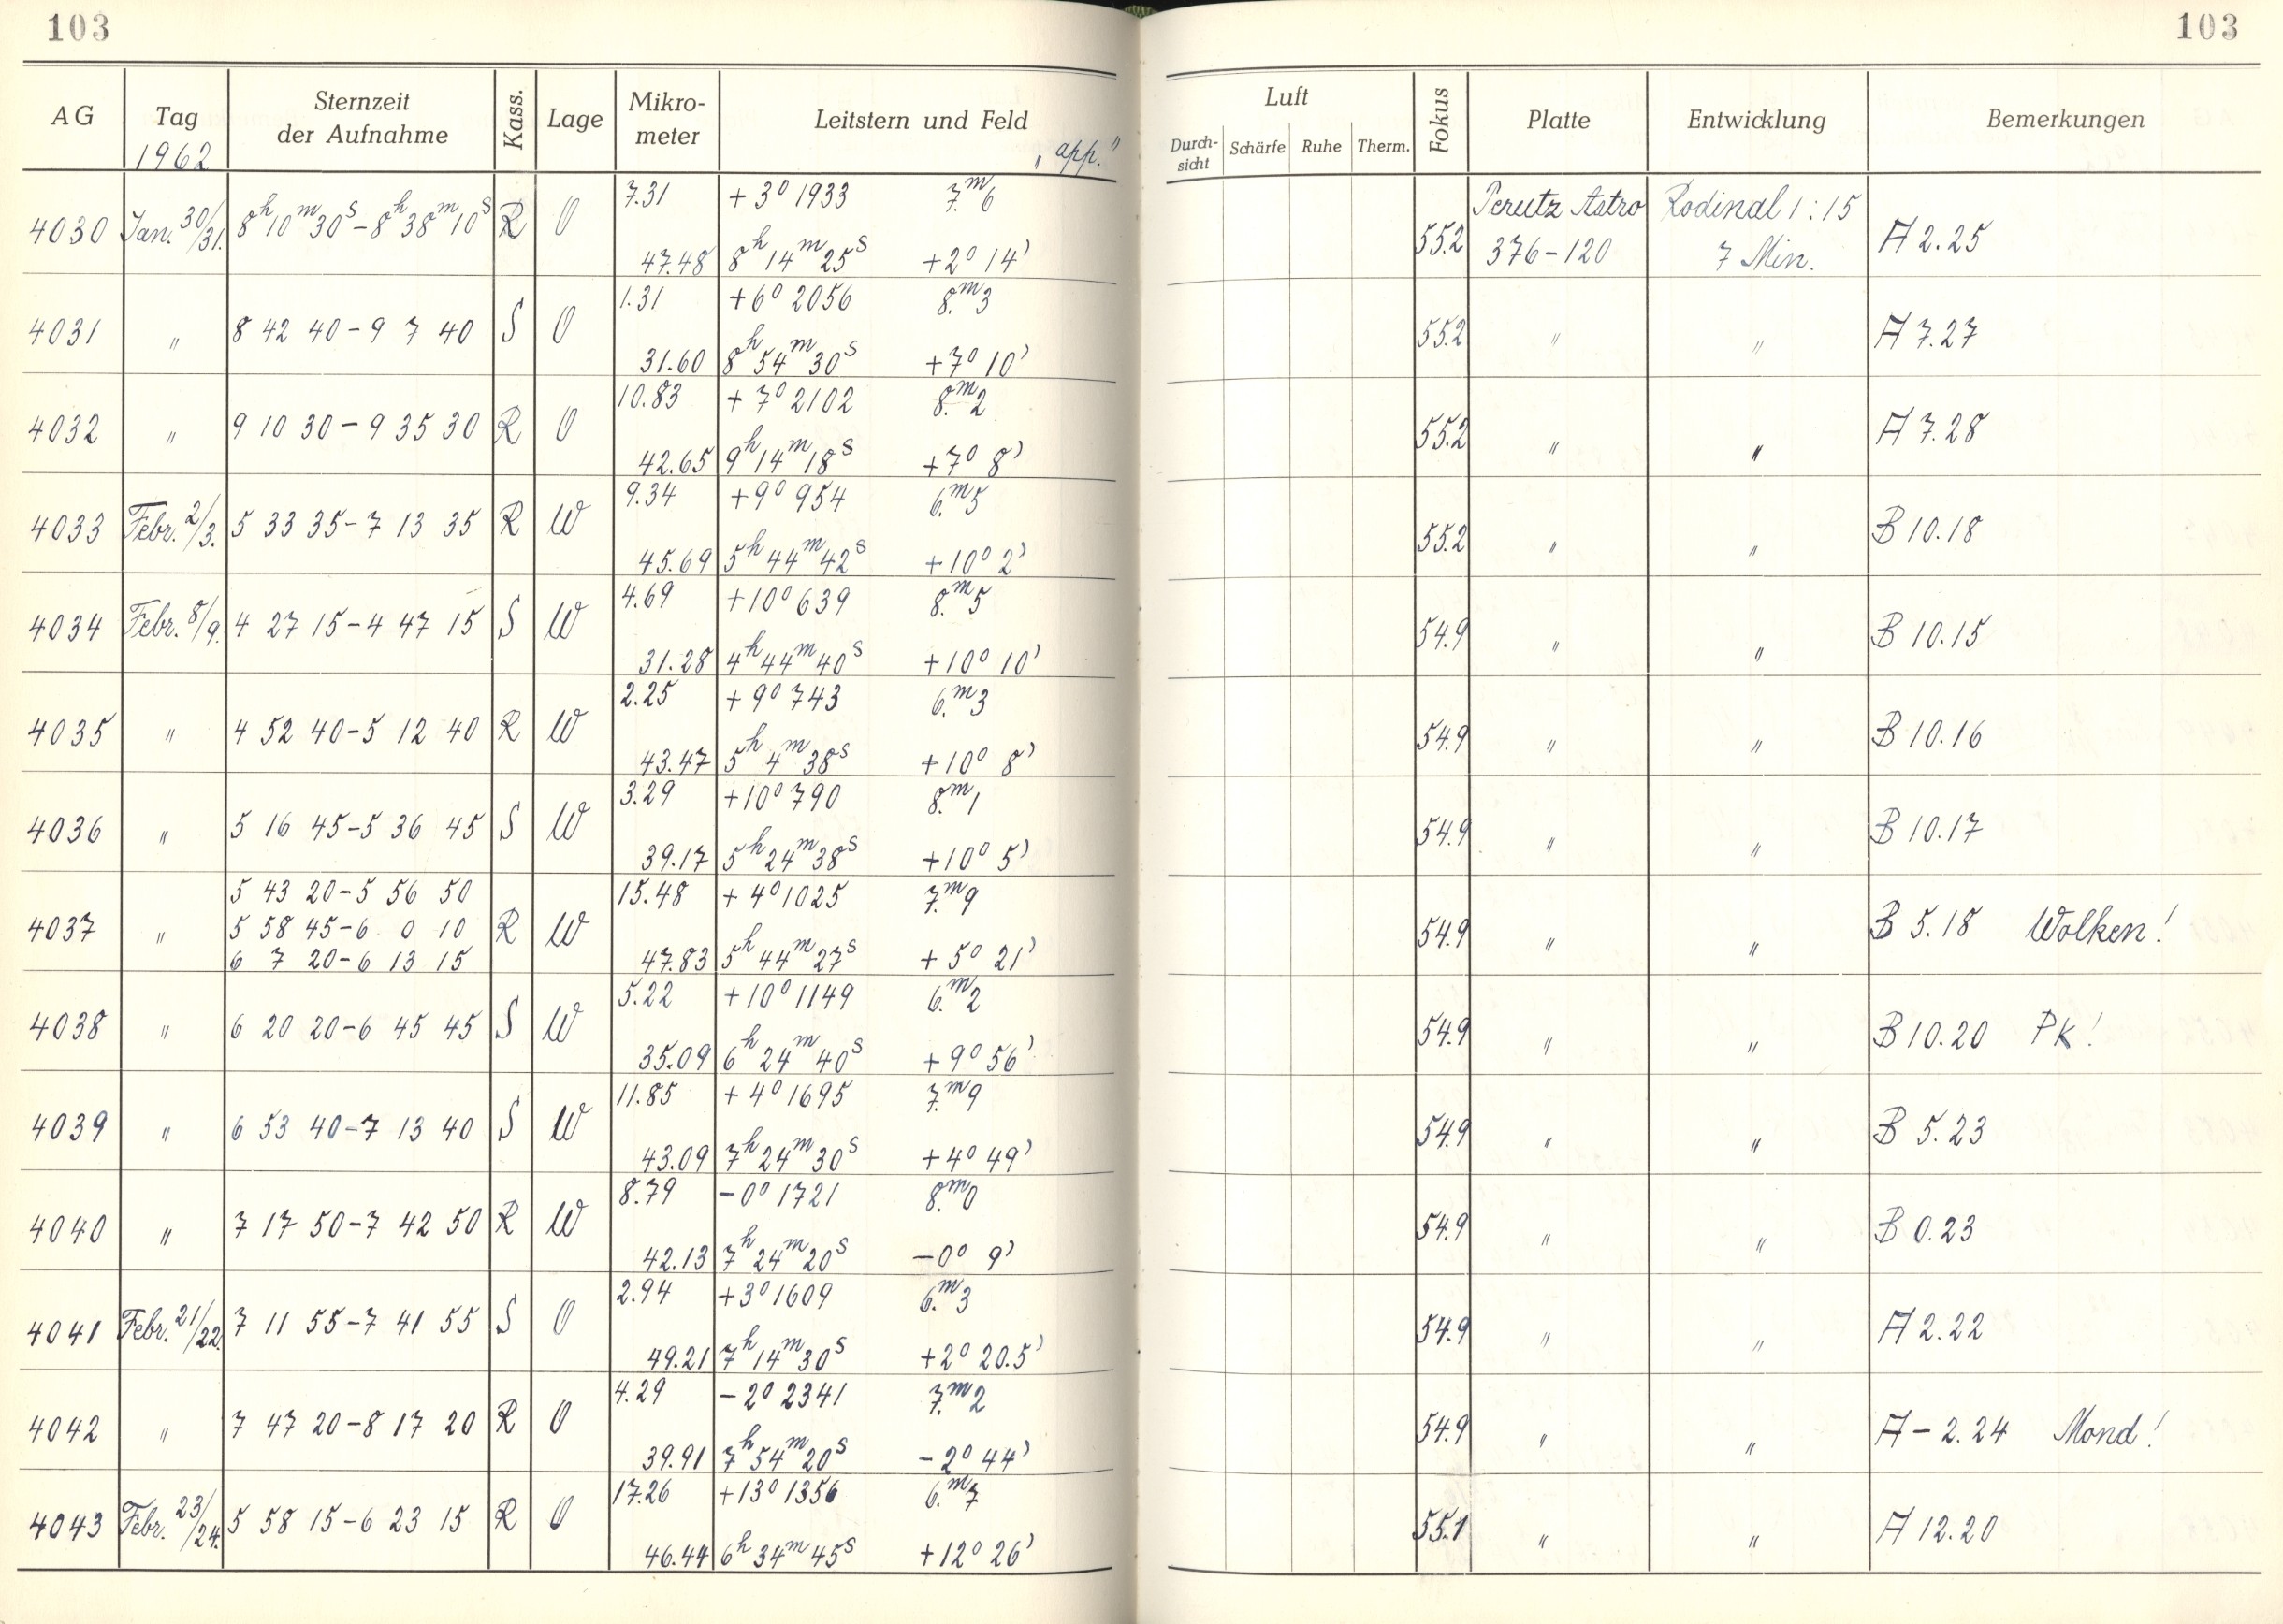 103 103
AG Tag 1962 Sternzeit der Aufnahme Kass. Lage Mikro-meter Leitstern und Feld „app." Luft Durch-sicht Schärfe Ruhe Therm. Fokus Platte Entwicklung Bemerkungen
7.31 +3° 1933 7.m6 Perutz Astro Rodinal 1:15
4030 Jan. 30/31. 8h10m30s-8h38m10s R O 55.2 A 2.25
47.48 8h 14m 25s +2° 14' 376-120 7 Min.
1.31 +6° 2056 8.m3
4031 " 8 42 40-9 7 40 S O 55.2 " " A 7.27
31.60 8h 54m 30s +7° 10'
10.83 +7° 2102 8.m2
4032 " 9 10 30-9 35 30 R O 55.2 " " A 7.28
42.65 9h 14m 18s +7° 8'
9.34 +9° 954 6.m5
4033 Febr. 2/3. 5 33 35-7 13 35 R W 55.2 " " B 10.18
45.69 5h 44m 42s +10° 2'
4.69 +10° 639 8.m5
4034 Febr. 8/9. 4 27 15-4 47 15 S W 54.9 " " B 10.15
31.28 4h 44m 40s +10° 10'
2.25 +9° 743 6.m3
4035 " 4 52 40-5 12 40 R W 54.9 " " B 10.16
43.47 5h 4m 38s +10° 8'
3.29 +10° 790 8.m1
4036 " 5 16 45-5 36 45 S W 54.9 " " B 10.17
39.17 5h 24m 38s +10° 5'
5 43 20-5 56 50 15.48 +4° 1025 7.m9
4037 " 5 58 45-6 0 10 R W 54.9 " " B 5.18 Wolken!
6 7 20-6 13 15 47.83 5h 44m 27s +5° 21'
5.22 +10° 1149 6.m2
4038 " 6 20 20-6 45 45 S W 54.9 " " B 10.20 PK!
35.09 6h 24m 40s +9° 56'
11.85 +4° 1695 7.m9
4039 " 6 53 40-7 13 40 S W 54.9 " " B 5.23
43.09 7h 24m 30s +4° 49'
8.79 -0° 1721 8.m0
4040 " 7 17 50-7 42 50 R W 54.9 " " B 0.23
42.13 7h 24m 20s -0° 9'
2.94 +3° 1609 6.m3
4041 Febr. 21/22. 7 11 55-7 41 55 S O 54.9 " " A 2.22
49.21 7h 14m 30s +2° 20.5'
4.29 -2° 2341 7.m2
4042 " 7 47 20-8 17 20 R O 54.9 " " A -2.24 Mond!
39.91 7h 54m 20s -2° 44'
17.26 +13° 1356 6.m7
4043 Febr. 23/24. 5 58 15-6 23 15 R O 55.1 " " A 12.20
46.44 6h 34m 45s +12° 26'